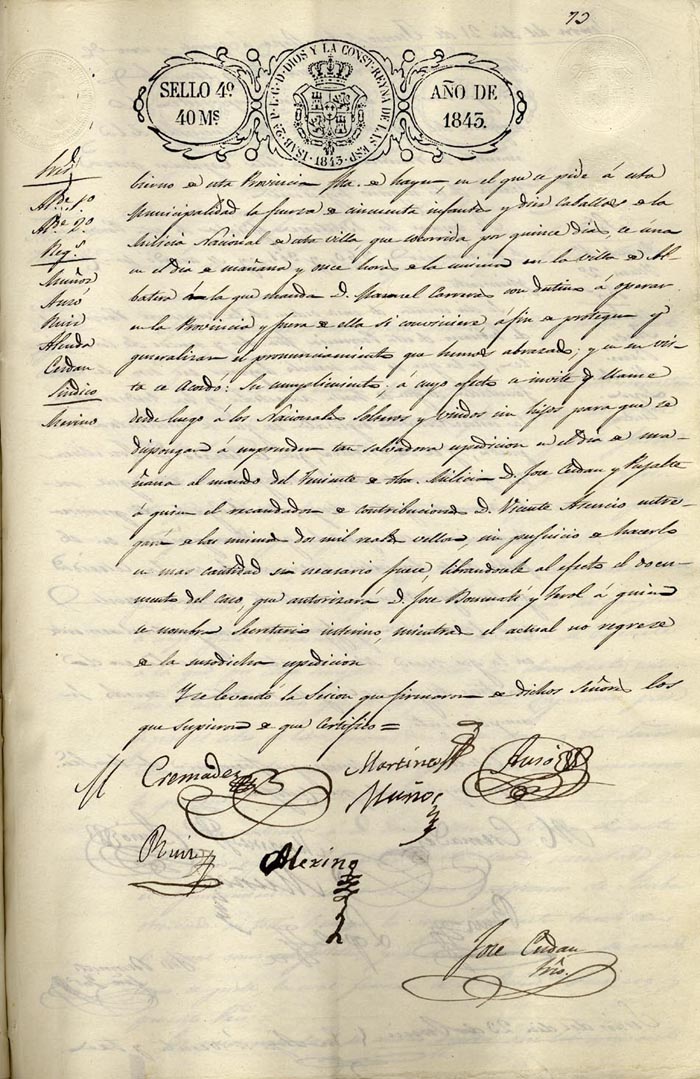 73
SELLO 4º
40 Mˢ
ISAB. 2ª P. L. G. D. DIOS Y LA CONST. REYNA DE LAS ESP.
1843
AÑO DE
1843.
Alᵈᵉ 1º
Alᵈᵉ 2º
Regˢ
Muñoz
Ausó
Ruiz
Cerdan
Sindico
Merino
bierno de esta Provincia fha. de hayer, en el que se pide á esta
Municipalidad la fuerza de cincuenta infantes y diez Caballos de la
Milicia Nacional de esta villa que socorrida por quince dias, se una
en el dia de mañana y once horas de la misma en la villa de Al-
batera á la que manda D. Manuel Carreras con destino a operar
en la Provincia y fuera de ella si conviniese, á fin de proteger y
generalizar el pronunciamiento que hemos abrazado; y en su vis-
ta se Acordó: Su cumplimiento; á cuyo efecto se invite y llame
desde luego á los Nacionales Solteros y viudos sin hijos para que se
dispongan á emprender tan salvadora espedicion en el dia de ma-
ñana al mando del Teniente de dha. Milicia D. José Cerdan y
á quien el recaudador de contribuciones D. Vicente Asencio entre-
gará de las mismas dos mil reales vellon, sin perjuicio de hacerlo
de mas cantidad si necesario fuere, librandosele al efecto el docu-
mento del caso, que autorizará D. José y á quien
se nombra Secretario interino, mientras el actual no regrese
de la susodicha espedicion
Y se levantó la Sesion que firmaron de dichos Señores los
que supieron de que Certifico =
M Cremades
Martinez
Ausó
Muñoz
Ruiz
Merino
José Cerdan
Srio.